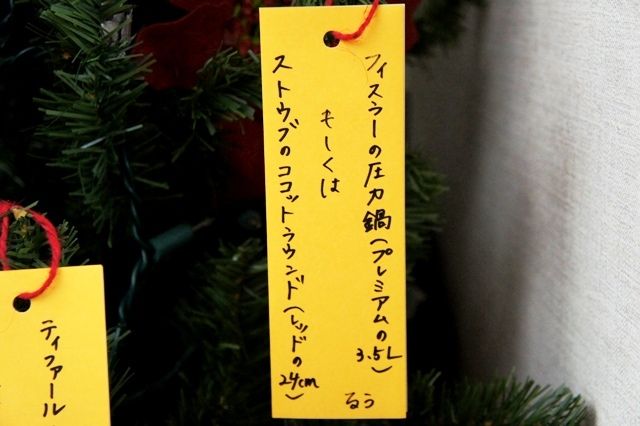 フィスラーの圧力鍋(プレミアムの3.5L)
もしくは
ストウブのココットラウンド(レッドの24cm)
るう
ティファール